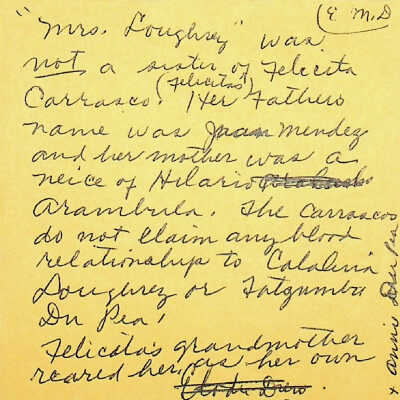 (E. M.D
"Mrs. Loughrey" was
not a sister of Felicita
(Felicitas')
Carrasco. Her Fathers
name was Juan Mendez
and her mother was a
neice of Hilario
Arambula. The Carrascos
do not claim any blood
relationship to Catalina
Loughrey or Fatgumba
Du Pea!
Felicata's grandmother
reared her, as her own
+ Annie Du Pea